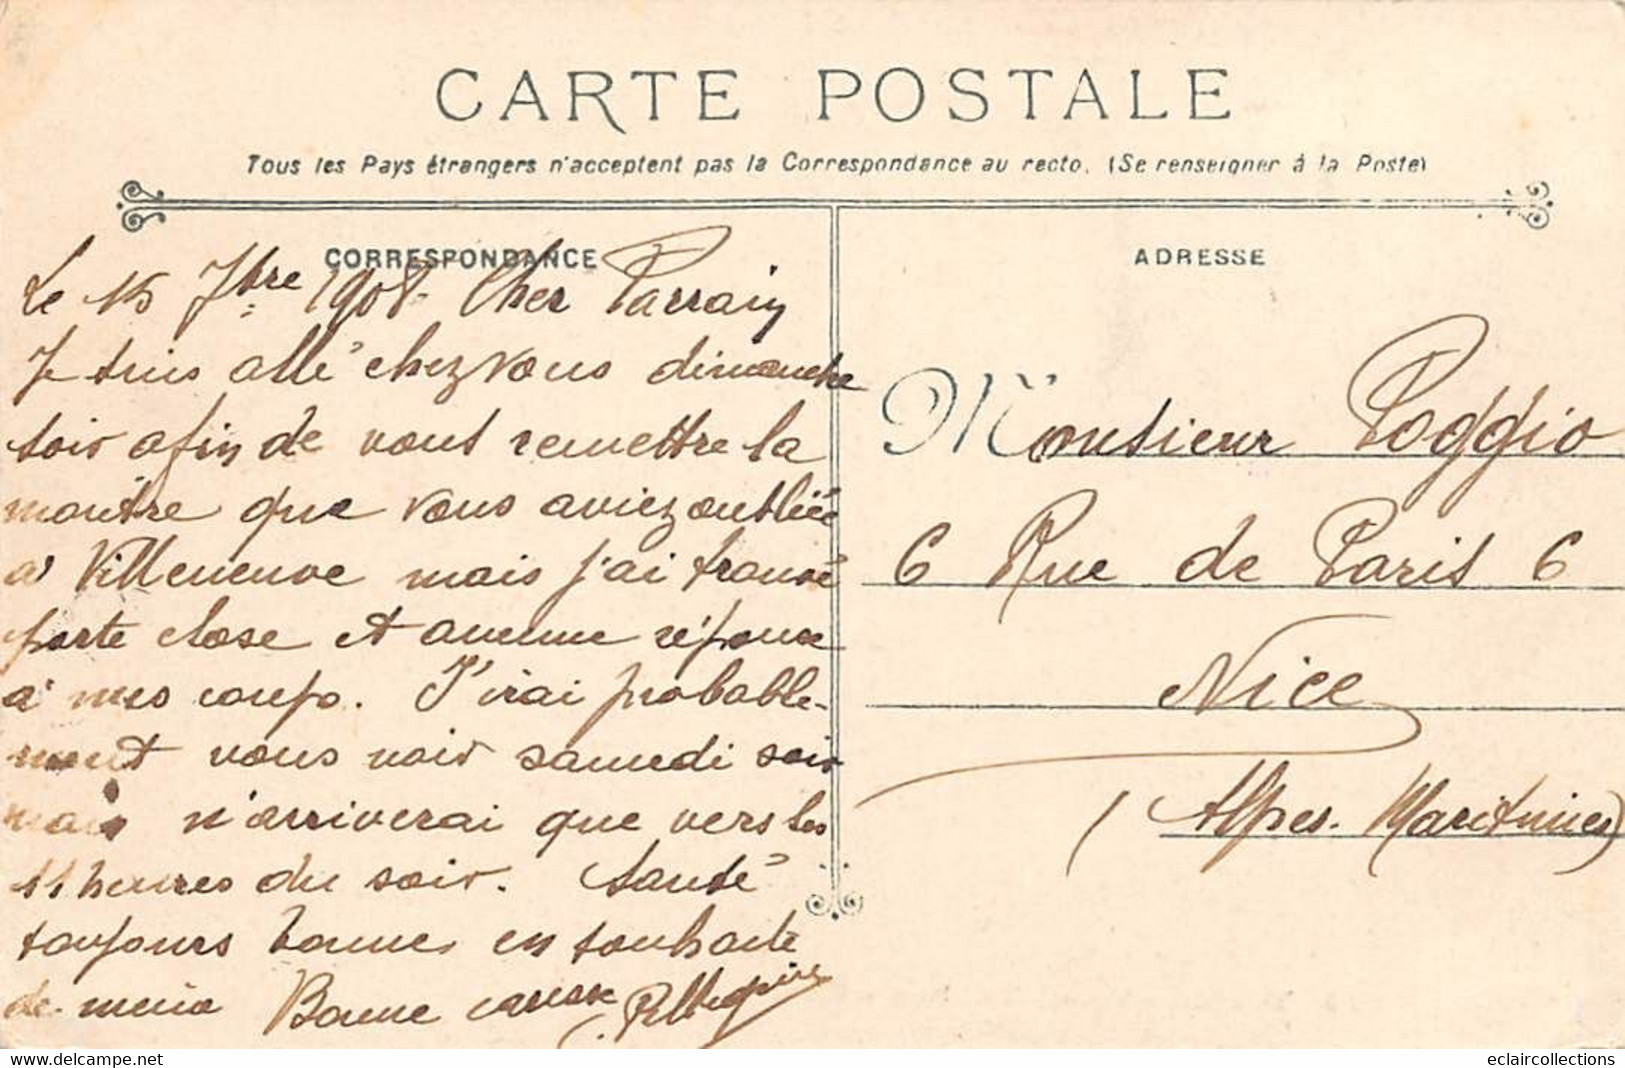 CARTE POSTALE
Tous les Pays étrangers n'acceptent pas la Correspondance au recto. (Se renseigner à la Poste)
CORRESPONDANCE
ADRESSE
Le 15 7bre 1908. Cher Parrain
Je suis allé chez vous dimanche
soir afin de vous remettre la
montre que vous aviez oubliée
à Villeneuve mais j'ai trouvé
porte close et aucune réponse
à mes coups. J'irai probable-
ment vous voir samedi soir
mais n'arriverai que vers les
11 heures du soir. Santé
toujours bonne en souhaite
de même Bonne caresse
Monsieur Poggio
6 Rue de Paris 6
Nice
(Alpes-Maritimes)
www.delcampe.net
eclaircollections